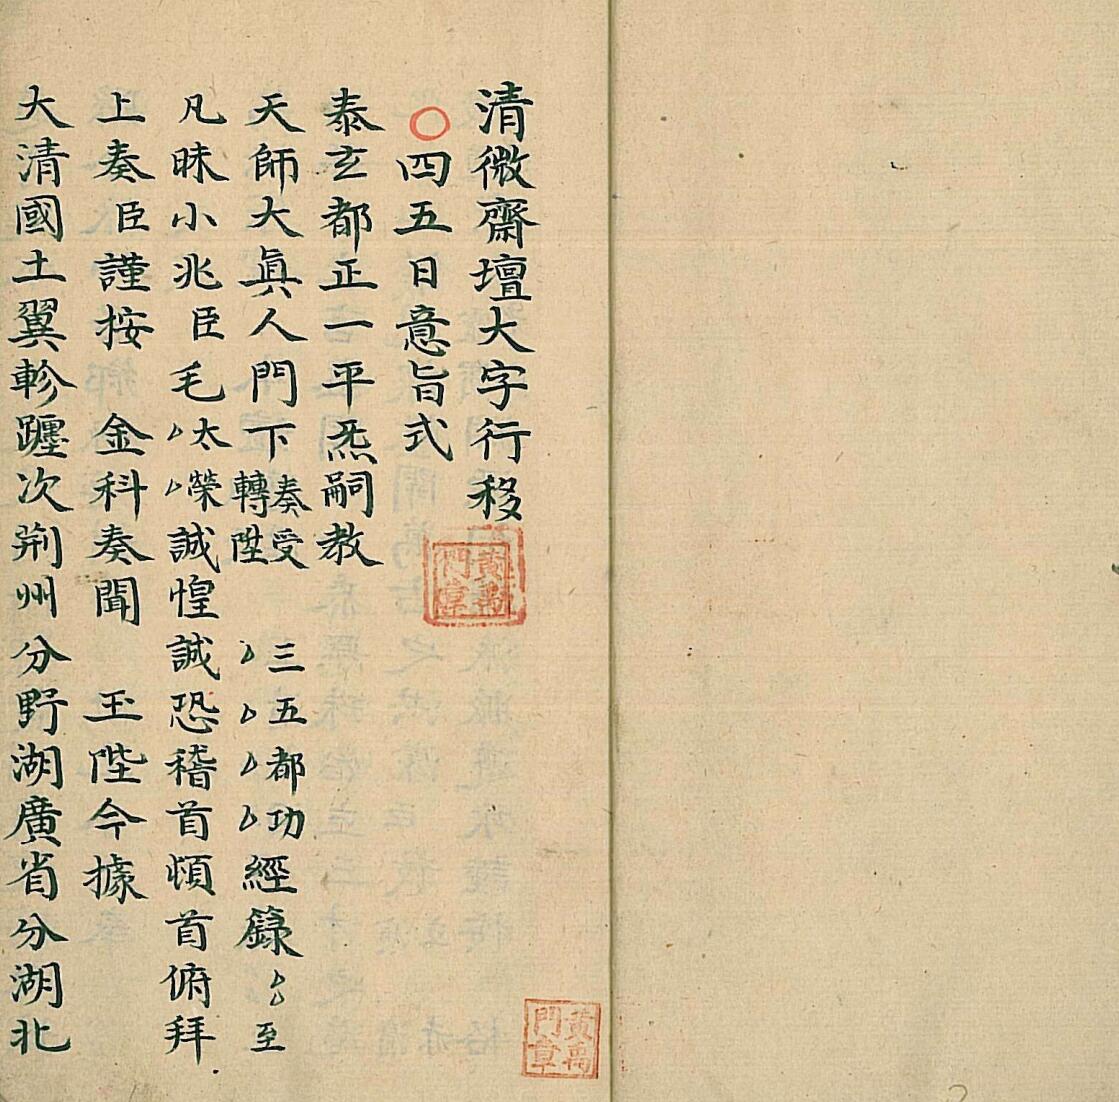 清微齋壇大字行移
四五日意旨式
泰玄都正一平炁嗣教
天師大眞人門下奏受轉陞三五都功經籙至
凡昧小兆臣毛太榮誠惶誠恐稽首頓首俯拜
上奏臣謹按 金科奏聞 玉陛今據
大清國土翼軫躔次荊州分野湖廣省分湖北
黃禹門章
黃禹門章